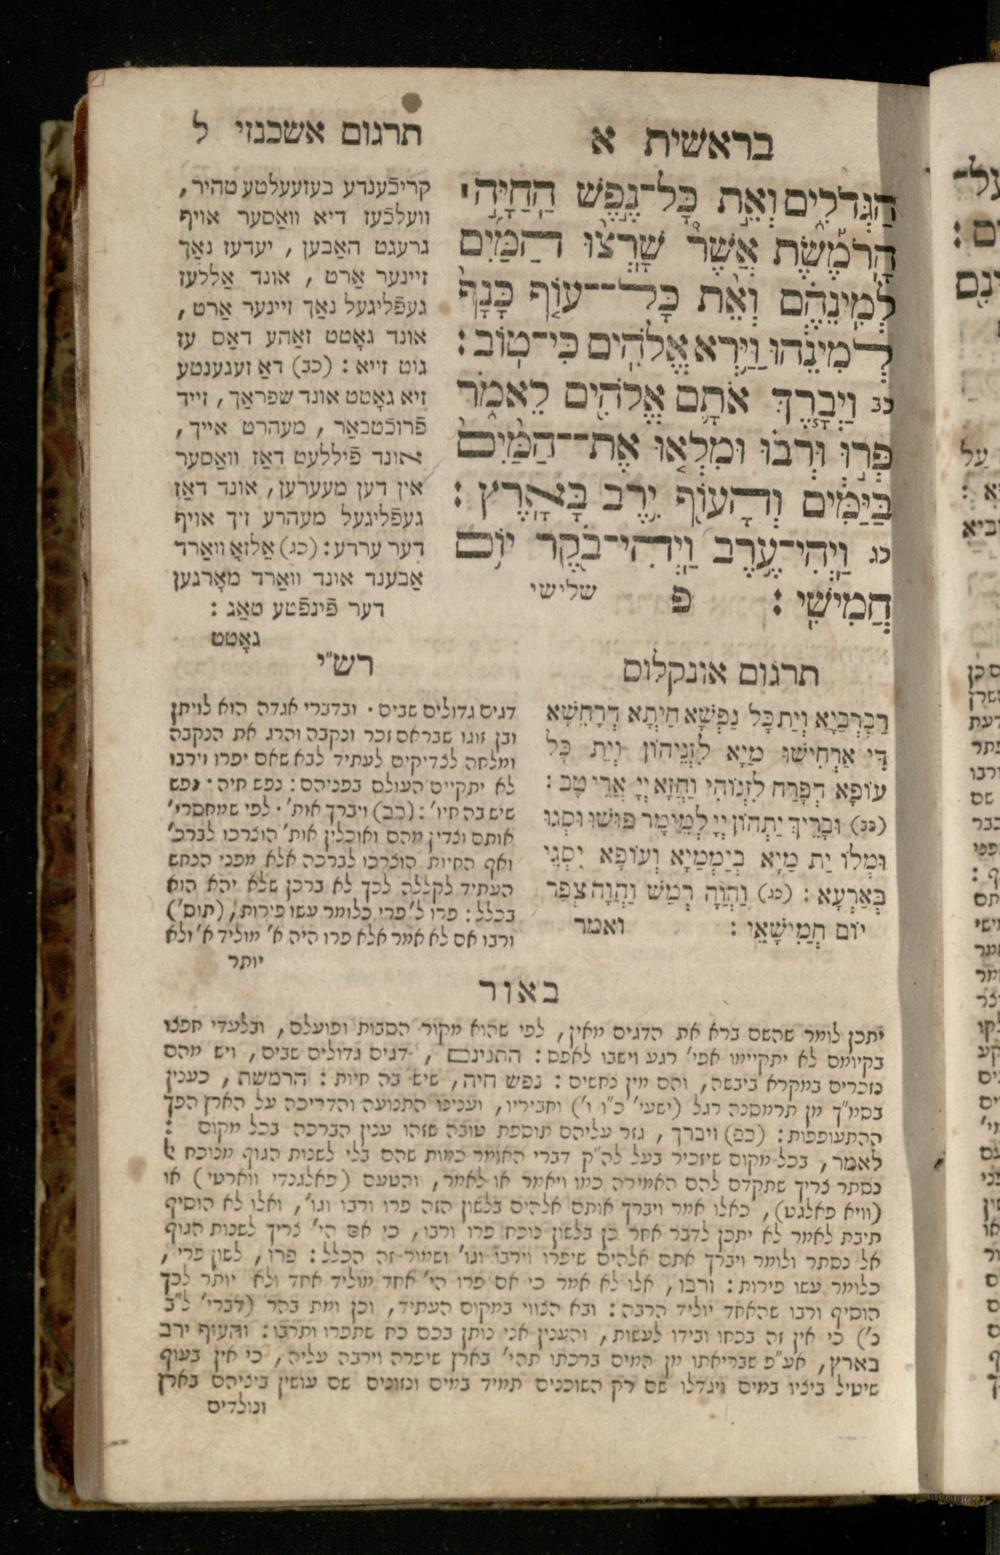 בראשית א
תרגום אשכנזי ל
הַגְּדֹלִ֑ים וְאֵ֣ת כָּל־נֶ֣פֶשׁ הַֽחַיָּ֣ה ׀
הָֽרֹמֶ֡שֶׂת אֲשֶׁר֩ שָׁרְצ֨וּ הַמַּ֜יִם
לְמִֽינֵהֶ֗ם וְאֵ֨ת כָּל־עוֹף כָּנָף֙
לְמִינֵ֔הוּ וַיַּ֥רְא אֱלֹהִ֖ים כִּי־טֽוֹב:
כב וַיְבָ֧רֶךְ אֹתָ֛ם אֱלֹהִ֖ים לֵאמֹ֑ר
פְּר֣וּ וּרְב֗וּ וּמִלְא֤וּ אֶת־הַמַּ֙יִם֙
בַּיַּמִּ֔ים וְהָע֖וֹף יִ֥רֶב בָּאָֽרֶץ:
כג וַֽיְהִי־עֶ֥רֶב וַֽיְהִי־בֹ֖קֶר י֥וֹם
חֲמִישִֽׁי: פ שלישי
קריכֿענדע בעזעעלטע טהיר,
וועלכֿעז דיא וואַסער אויף
גרעגט האַבען, יעדעז נאַך
זיינער אַרט, אונד אַללעז
געפֿליגעל נאַך זיינער אַרט,
אונד גאָטט זאַהע דאַס עז
גוט זייא: (כב) דאַ זעגענטע
זיא גאָטט אונד שפראַך, זייד
פֿרוכֿטבאַר, מעהרט אייך,
אונד פֿיללעט דאַז וואַסער
אין דען מעערען, אונד דאַז
געפֿליגעל מעהרע זיך אויף
דער ערדע: (כג) אַלזאָ וואַרד
אַבענד אונד וואַרד מאָרגען
דער פֿינפֿטע טאַג:
גאָטט
תרגום אונקלוס
רַבְרְבַיָּא וְיַת כָּל נַפְשָׁא חַיְתָא דְּרָחֲשָׁא
דִּי אַרְחִישׁוּ מַיָּא לִזְנֵיהוֹן וְיַת כָּל
עוֹפָא דְּפָרַח לִזְנוֹהִי וַחֲזָא יְיָ אֲרֵי טָב:
(כב) וּבָרֵיךְ יַתְהוֹן יְיָ לְמֵימָר פּוּשׁוּ וּסְגוּ
וּמְלוֹ יַת מַיָּא בְּיַמְמַיָּא וְעוֹפָא יִסְגֵּי
בְּאַרְעָא: (כג) וַהֲוָה רְמַשׁ וַהֲוָה צְפַר
יוֹם חֲמִישָׁאֵי: ואמר
רש"י
דגים גדולים שבים. ובדברי אגדה הוא לויתן
ובן זוגו שבראם זכר ונקבה והרג את הנקבה
ומלחה לצדיקים לעתיד לבא שאם יפרו וירבו
לא יתקיים העולם בפניהם: נפש חיה. נפש
שיש בה חיו': (כב) ויברך אות'. לפי שמחסרי'
אותם וצדין מהם ואוכלין אות' הוצרכו לברכ'
ואף החיות הוצרכו לברכה אלא מפני הנחש
העתיד לקללה לכך לא ברכן שלא יהא הוא
בכלל: פרו ל' פרי כלומר עשו פירות, (תוס')
ורבו אם לא אמר אלא פרו היה א' מוליד א' ולא
יותר
באור
יתכן לומר שהשם ברא את הדגים מאין, לפי שהוא מקור הסבות ופועלם, ובלעדי חפצו
בקיומם לא יתקיימו אפי' רגע וישבו לאפס: התנינם, דגים גדולים שבים, ויש מהם
נזכרים במקרא ביבשה, והם מין נחשים: נפש חיה, שיש בה חיות: הרמשת, כענין
בסמ"ך מן תרמסנה רגל (ישעי' כ"ו ו') וחביריו, וענינו התנועה והדריכה על הארץ הפך
ההתעופפות: (כב) ויברך, גזר עליהם תוספת טובה שזהו ענין הברכה בכל מקום:
לאמר, בכל מקום שיזכיר בעל לה"ק דברי האומר כמות שהם בלי לשנות הגוף מנוכח ל
נסתר צריך שתקדם להם האמירה כמו ויאמר או לאמר, והטעם (פאלגנדי ווארטי) או
(וויא פאלגט), כאלו אמר ויברך אותם אלהים בלשון הזה פרו ורבו וגו', ואלו לא הוסיף
תיבת לאמר לא יתכן לדבר אחר כן בלשון נוכח פרו ורבו, כי אם הי' צריך לשנות הגוף
אל נסתר ולומר ויברך אתם אלהים שיפרו וירבו וגו' ושמור זה הכלל: פרו, לשון פרי,
כלומר עשו פירות: ורבו, אלו לא אמר כי אם פרו הי' אחד מוליד אחד ולא יותר לכך
הוסיף ורבו שהאחד יוליד הרבה: ובא הצווי במקום העתיד, וכן ומת בהר (דברי' ל"ב
נ') כי אין זה בכחו ובידו לעשות, והענין אני נותן בכם כח שתפרו ותרבו: והעוף ירב
בארץ, אע"פ שבריאתו מן המים ברכתו תהי' בארץ שיפרה וירבה עליה, כי אין בעוף
שיטיל ביציו במים ויגדלו שם רק השוכנים תמיד במים וניזונים שם עושין ביציהם בארץ
ונולדים